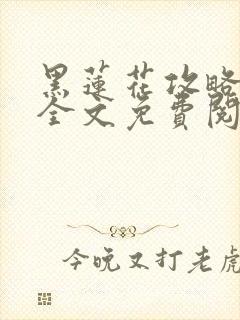 黑蓮花攻略
全文免費閱
今晚又打老虎